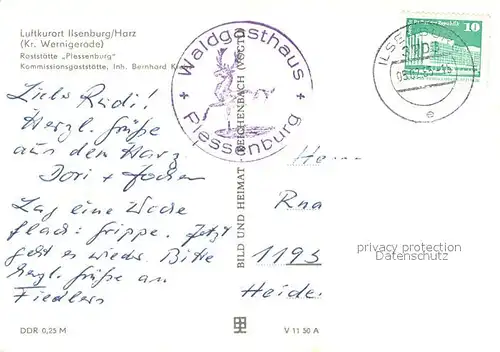 Luftkurort Ilsenburg/Harz
(Kr. Wernigerode)
Raststätte „Plessenburg"
Kommissionsgaststätte, Inh. Bernhard
Waldgasthaus
Plessenburg
10
Liebe Rudi!
Herzl. Grüße
aus dem Harz
Dori + Jochen
Lag eine Woche
flach: Grippe. Jetzt
geht es wieder. Bitte
herzl. Grüße an
Fiedlers
BILD UND HEIMAT REICHENBACH (VOGTL)
Rna
1195
Heide
privacy protection
Datenschutz
DDR 0,25 M
V 11 50 A